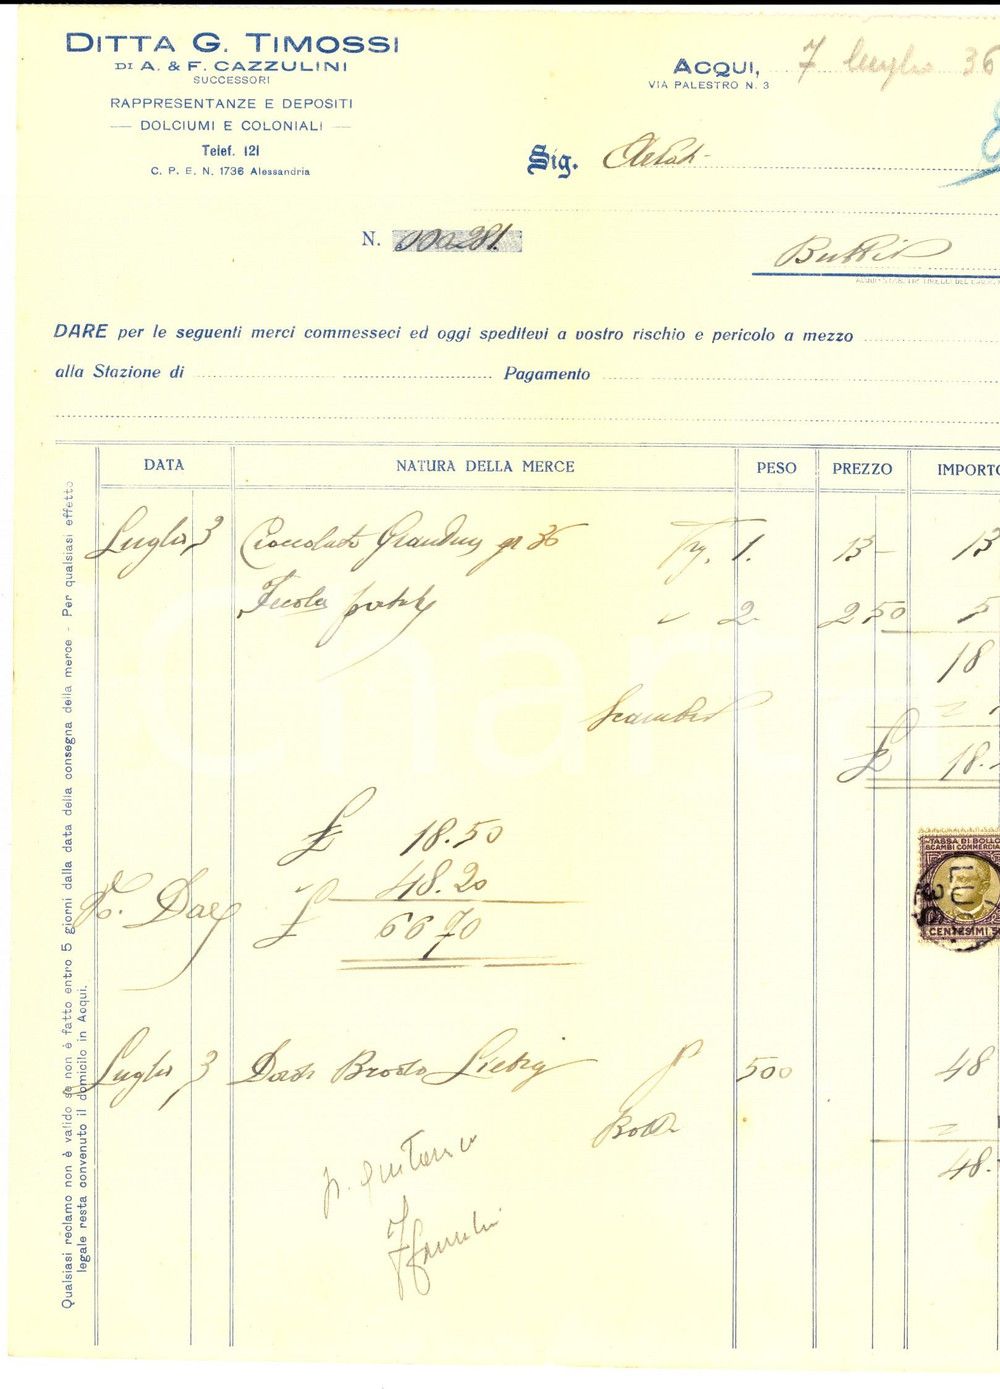 DITTA G. TIMOSSI
DI A. & F. CAZZULINI
SUCCESSORI
RAPPRESENTANZE E DEPOSITI
— DOLCIUMI E COLONIALI —
Telef. 121
C. P. E. N. 1736 Alessandria
ACQUI, 7 luglio 36
VIA PALESTRO N. 3
Sig.
N. 000281.
DARE per le seguenti merci commesseci ed oggi speditevi a vostro rischio e pericolo a mezzo
alla Stazione di Pagamento
DATA NATURA DELLA MERCE PESO PREZZO IMPORTO
Luglio 3 Cioccolato gr 36 Kg. 1. 13 — 13
Fecola 2 2 50 5
18
Scambio
£ 18.
£ 18.50
48.20
£ 66 70
TASSA DI BOLLO
SCAMBI COMMERCIA
CENTESIMI 5
Luglio 3 Dadi Brodo Liebig 500 48
Bollo
48.
p. quitanza
Qualsiasi reclamo non è valido se non è fatto entro 5 giorni dalla data della consegna della merce - Per qualsiasi effetto
legale resta convenuto il domicilio in Acqui.
Charta